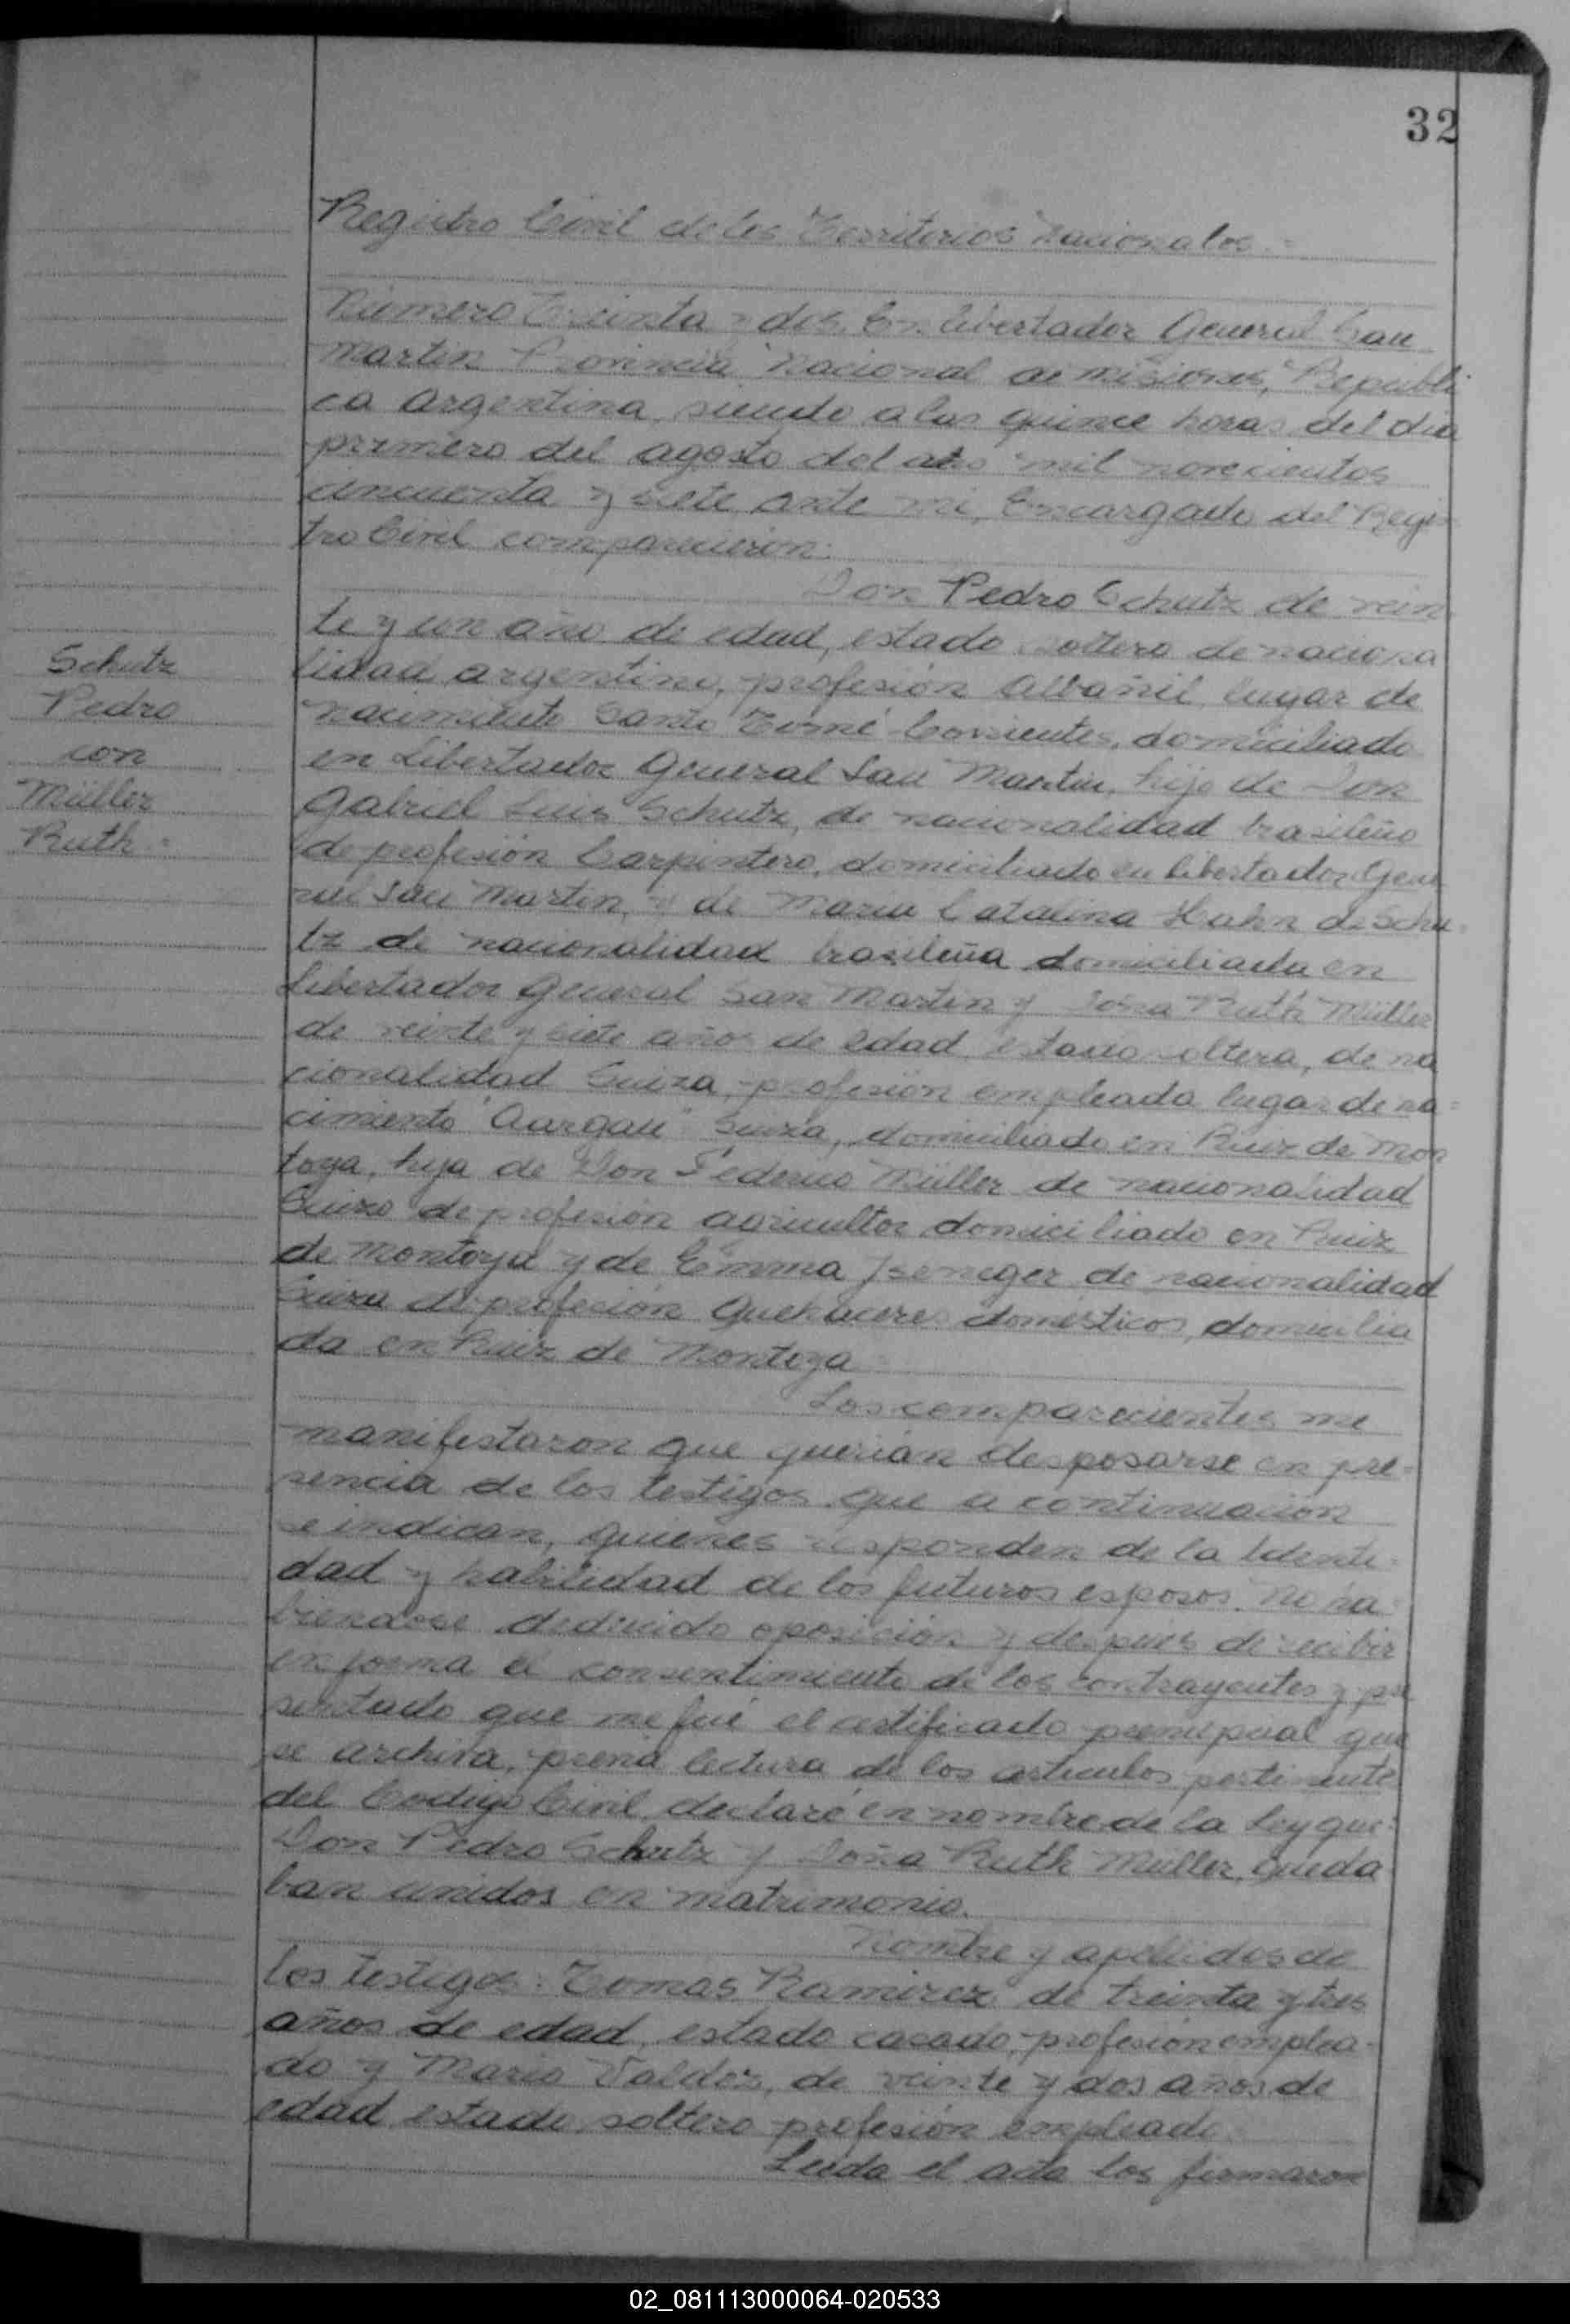 32
Registro Civil de los Territorios Nacionales.=
Número treinta y dos. En libertador General San
Martín Provincia Nacional de Misiones, Repúbli
ca Argentina, siendo a las quince horas del dia
primero del agosto del año mil novecientos
cincuenta y siete ante mi, Encargado del Regis
tro Civil comparecieron:
Don Pedro Schutz de vein
te y un año de edad, estado soltero de naciona
lidad argentino, profesión Albañil lugar de
nacimiento Santo Tomé Corrientes, domiciliado
en Libertador General San Martin, hijo de Don
Gabriel Luis Schutz, de nacionalidad brasileño
de profesión Carpintero, domiciliado en libertador Gene
ral San Martin, y de Maria Catalina Hahn de Schu=
tz de nacionalidad brasileña domiciliada en
Libertador General San Martin y Doña Ruth Müller
de veinte y siete años de edad estado soltera, de na
cionalidad Suiza, profesión empleada lugar de na=
cimiento "Aargau" Suiza, domiciliado en Ruiz de Mon
toya, hija de Don Federico Müller de nacionalidad
Suizo de profesión agricultor domiciliado en Ruiz
de Montoya y de Emma Iseneger de nacionalidad
Suiza de profesión Quehaceres domésticos, domicilia
da en Ruiz de Montoya=
Schutz
Pedro
con
Müller
Ruth=
Los comparecientes me
manifestaron que querían desposarse en pre=
sencia de los testigos que a continuación
se indican, quienes responden de la Identi=
dad y habilidad de los futuros esposos. No ha=
biendose deducido oposición y después de recibir
en forma el consentimiento de los contrayentes y pre
sentado que me fué el certificado prenupcial que
se archiva, previa lectura de los articulos pertinente
del Codigo Civil, declaré en nombre de la Ley que:
Don Pedro Schutz y Doña Ruth Müller, queda
ban unidos en matrimonio.
Nombre y apellidos de
los testigos: Tomas Ramirez de treinta y tres
años de edad, estado casado, profesión emplea=
do y Mario Valdez, de veinte y dos años de
edad estado soltero profesión empleado.
Leida el acta los firmaron
02_081113000064-020533